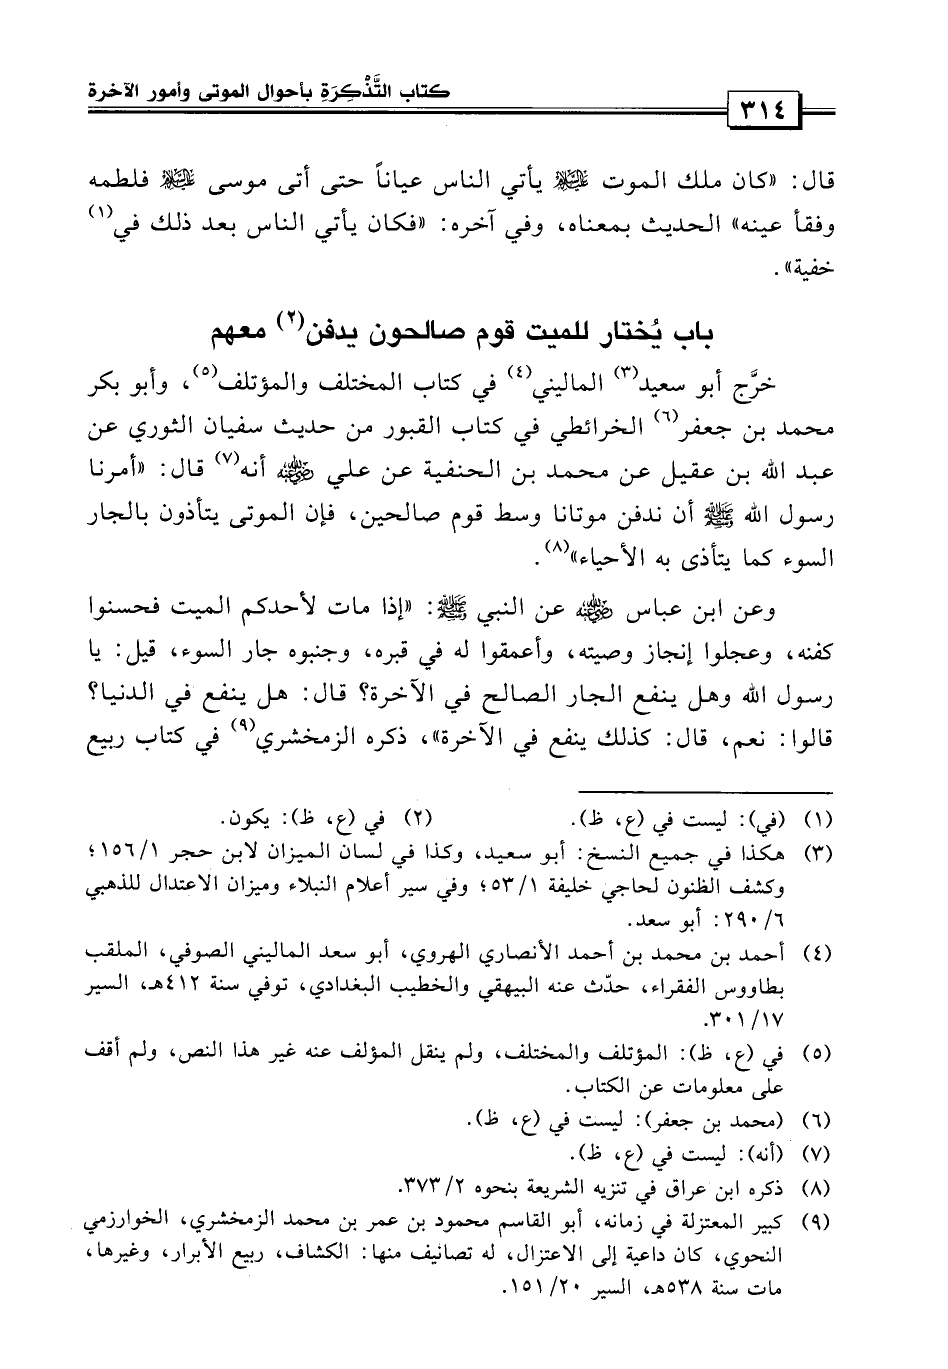 كتاب التَّذْكِرَةِ بأحوال الموتى وأمور الآخرة
٣١٤
قال: «كان ملك الموت عليه السلام يأتي الناس عياناً حتى أتى موسى عليه السلام فلطمه
وفقأ عينه» الحديث بمعناه، وفي آخره: «فكان يأتي الناس بعد ذلك في(١)
خفية».
باب يُختار للميت قوم صالحون يدفن(٢) معهم
خرَّج أبو سعيد(٣) الماليني(٤) في كتاب المختلف والمؤتلف(٥)، وأبو بكر
محمد بن جعفر(٦) الخرائطي في كتاب القبور من حديث سفيان الثوري عن
عبد الله بن عقيل عن محمد بن الحنفية عن علي رضي الله عنه أنه(٧) قال: «أمرنا
رسول الله ﷺ أن ندفن موتانا وسط قوم صالحين، فإن الموتى يتأذون بالجار
السوء كما يتأذى به الأحياء»(٨).
وعن ابن عباس رضي الله عنه عن النبي ﷺ: «إذا مات لأحدكم الميت فحسنوا
كفنه، وعجلوا إنجاز وصيته، وأعمقوا له في قبره، وجنبوه جار السوء، قيل: يا
رسول الله وهل ينفع الجار الصالح في الآخرة؟ قال: هل ينفع في الدنيا؟
قالوا: نعم، قال: كذلك ينفع في الآخرة»، ذكره الزمخشري(٩) في كتاب ربيع
(١) (في): ليست في (ع، ظ). (٢) في (ع، ظ): يكون.
(٣) هكذا في جميع النسخ: أبو سعيد، وكذا في لسان الميزان لابن حجر ١/١٥٦؛
وكشف الظنون لحاجي خليفة ١/٥٣؛ وفي سير أعلام النبلاء وميزان الاعتدال للذهبي
٦/٢٩٠: أبو سعد.
(٤) أحمد بن محمد بن أحمد الأنصاري الهروي، أبو سعد الماليني الصوفي، الملقب
بطاووس الفقراء، حدّث عنه البيهقي والخطيب البغدادي، توفي سنة ٤١٢هـ، السير
١٧/٣٠١.
(٥) في (ع، ظ): المؤتلف والمختلف، ولم ينقل المؤلف عنه غير هذا النص، ولم أقف
على معلومات عن الكتاب.
(٦) (محمد بن جعفر): ليست في (ع، ظ).
(٧) (أنه): ليست في (ع، ظ).
(٨) ذكره ابن عراق في تنزيه الشريعة بنحوه ٢/٣٧٣.
(٩) كبير المعتزلة في زمانه، أبو القاسم محمود بن عمر بن محمد الزمخشري، الخوارزمي
النحوي، كان داعية إلى الاعتزال، له تصانيف منها: الكشاف، ربيع الأبرار، وغيرها،
مات سنة ٥٣٨هـ، السير ٢٠/١٥١.